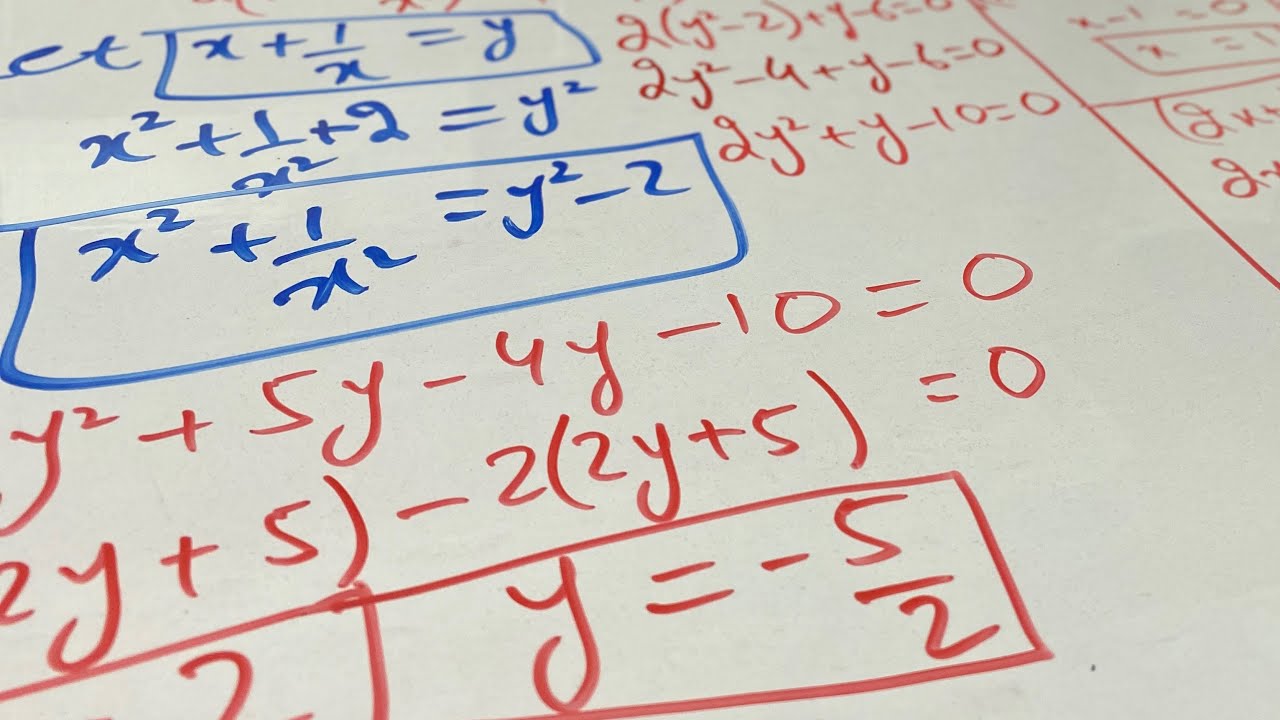 et x + 1/x = y
x² + 1/x² + 2 = y²
x² + 1/x² = y² - 2
2(y² - 2) + y - 6 = 0
2y² - 4 + y - 6 = 0
2y² + y - 10 = 0
x - 1 = 0
x = 1
(2x
2x
y² + 5y - 4y - 10 = 0
2y + 5) - 2(2y + 5) = 0
2
y = - 5/2